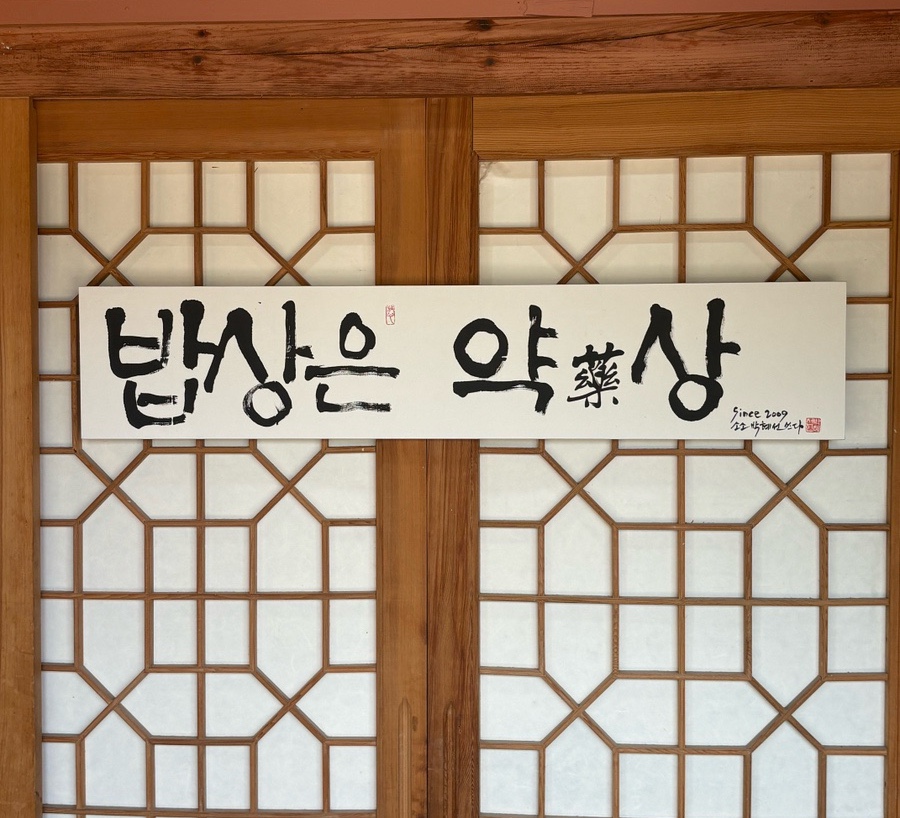 밥상은 약藥상
Since 2009
소소 박혜선 쓰다